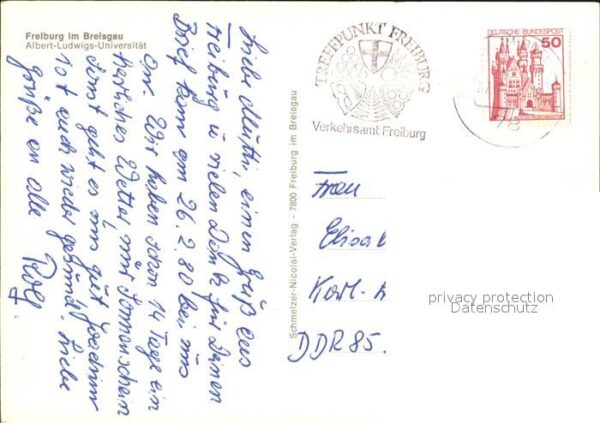 Freiburg im Breisgau
Albert-Ludwigs-Universität
Liebe Mutti, einen Gruß aus
Freiburg u vielen Dank für Deinen
Brief kam am 26.2.80 bei uns
an. Wir haben schon 14 Tage ein
Herrliches Wetter, nur Sonnenschein
sonst geht es uns gut Joachim
ist auch wieder gesund. Liebe
Grüße an alle
Rolf
Schmelzer-Nicolai-Verlag - 7800 Freiburg im Breisgau
TREFFPUNKT FREIBURG
Verkehrsamt Freiburg
78
DEUTSCHE BUNDESPOST
50
Frau
Elisab
Karl-
DDR 85.
privacy protection
Datenschutz